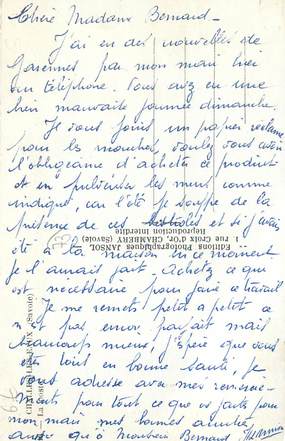 Chère Madame Bernard -
J'ai eu des nouvelles de
Garennes par mon mari hier
au téléphone. Vous avez eu une
bien mauvaise journée dimanche.
Je vous joins un papier réclame
pour les mouches, voulez vous avoir
l'obligeance d'acheter ce produit
et en pulvériser les murs comme
indiqué, car l'été je souffre de la
présence de ces bestioles et si j'avais
été à la maison en ce moment
je l'aurais fait. Achetez ce qui
est nécessaire pour faire ce travail
Je me remets petit à petit ce
n'est pas encor parfait mais
beaucoup mieux, j'espère que vous
êtes tous en bonne santé, je
vous adresse avec mes remercie-
ments pour tout ce que vous faites pour
mon mari mes bonnes amitiés,
ainsi qu'à Monsieur Bernard
Editions Photographiques JANSOL
1 rue Croix d'Or, CHAMBERY (Savoie)
Reproduction Interdite
(Savoie)
La Poste